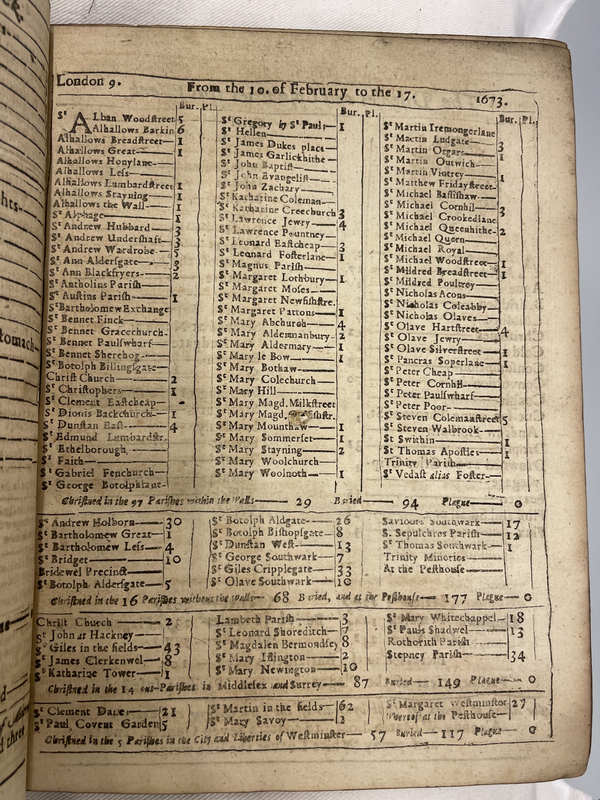 London 9.
From the 10. of February to the 17.
1673.
Bur. Pl.
St Alban Woodstreet 5
Alhallows Barkin 6
Alhallows Breadstreet 1
Alhallows Great 1
Alhallows Honylane
Alhallows Less
Alhallows Lumbardstreet 1
Alhallows Stayning 1
Alhallows the Wall 1
St Alphage 1
St Andrew Hubbard 3
St Andrew Undershaft 3
St Andrew Wardrobe 5
St Ann Aldersgate 3
St Ann Blackfryers 2
St Antholins Parish
St Austins Parish 1
St Bartholomew Exchange
St Bennet Finck
St Bennet Gracechurch
St Bennet Paulswharf
St Bennet Sherehog
St Botolph Billingsgate
Christ Church 2
St Christophers 1
St Clement Eastcheap
St Dionis Backchurch 1
St Dunstan East 4
St Edmund Lumbardstr.
St Ethelborough
St Faith
St Gabriel Fenchurch
St George Botolphlane
Bur. Pl.
St Gregory by St Pauls 1
St Hellen
St James Dukes place
St James Garlickhithe
St John Baptist
St John Evangelist
St John Zachary
St Katharine Coleman
St Katharine Creechurch 3
St Lawrence Jewry 4
St Lawrence Pountney
St Leonard Eastcheap 3
St Leonard Fosterlane 1
St Magnus Parish
St Margaret Lothbury 1
St Margaret Moses
St Margaret Newfishstre.
St Margaret Pattons 1
St Mary Abchurch 4
St Mary Aldermanbury 2
St Mary Aldermary 1
St Mary le Bow 1
St Mary Bothaw
St Mary Colechurch
St Mary Hill
St Mary Magd. Milkstreet
St Mary Magd.
St Mary Mounthaw 1
St Mary Sommerset 1
St Mary Stayning 2
St Mary Woolchurch
St Mary Woolnoth 1
Bur. Pl.
St Martin Iremongerlane
St Martin Ludgate 3
St Martin Orgars 1
St Martin Outwich 1
St Martin Vintrey 1
St Matthew Fridaystreet
St Michael Bassishaw
St Michael Cornhil 3
St Michael Crookedlane
St Michael Queenhithe 2
St Michael Queen
St Michael Royal
St Michael Woodstreet 1
St Mildred Breadstreet 1
St Mildred Poultrey
St Nicholas Acons
St Nicholas Coleabby
St Nicholas Olaves
St Olave Hartstreet 4
St Olave Jewry
St Olave Silverstreet 1
St Pancras Soperlane 1
St Peter Cheap
St Peter Cornhil
St Peter Paulswharf
St Peter Poor
St Steven Colemanstreet 5
St Steven Walbrook
St Swithin 1
St Thomas Apostles 1
Trinity Parish
St Vedast alias Foster 1
Christned in the 97 Parishes within the Walls 29 Buried 94 Plague 0
St Andrew Holborn 30
St Bartholomew Great 1
St Bartholomew Less 4
St Bridget 10
Bridewel Precinct
St Botolph Aldersgate 5
St Botolph Aldgate 26
St Botolph Bishopsgate 8
St Dunstan West 13
St George Southwark 7
St Giles Cripplegate 33
St Olave Southwark 10
Saviours Southwark 17
S. Sepulchres Parish 12
St Thomas Southwark 1
Trinity Minories
At the Pesthouse
Christned in the 16 Parishes without the Walls 68 Buried, and at the Pesthouse 177 Plague 0
Christ Church 2
St John at Hackney
St Giles in the fields 43
St James Clerkenwel 8
St Katharine Tower 1
Lambeth Parish 3
St Leonard Shoreditch 7
St Magdalen Bermondsey 8
St Mary Islington 2
St Mary Newington 10
St Mary Whitechappel 18
St Pauls Shadwel 13
Rothorith Parish
Stepney Parish 34
Christned in the 14 out-Parishes in Middlesex and Surrey 87 Buried 149 Plague 0
St Clement Danes 21
St Paul Covent Garden 5
St Martin in the fields 62
St Mary Savoy 2
St Margaret Westminster 27
Whereof at the Pesthouse
Christned in the 5 Parishes in the City and Liberties of Westminster 57 Buried 117 Plague 0